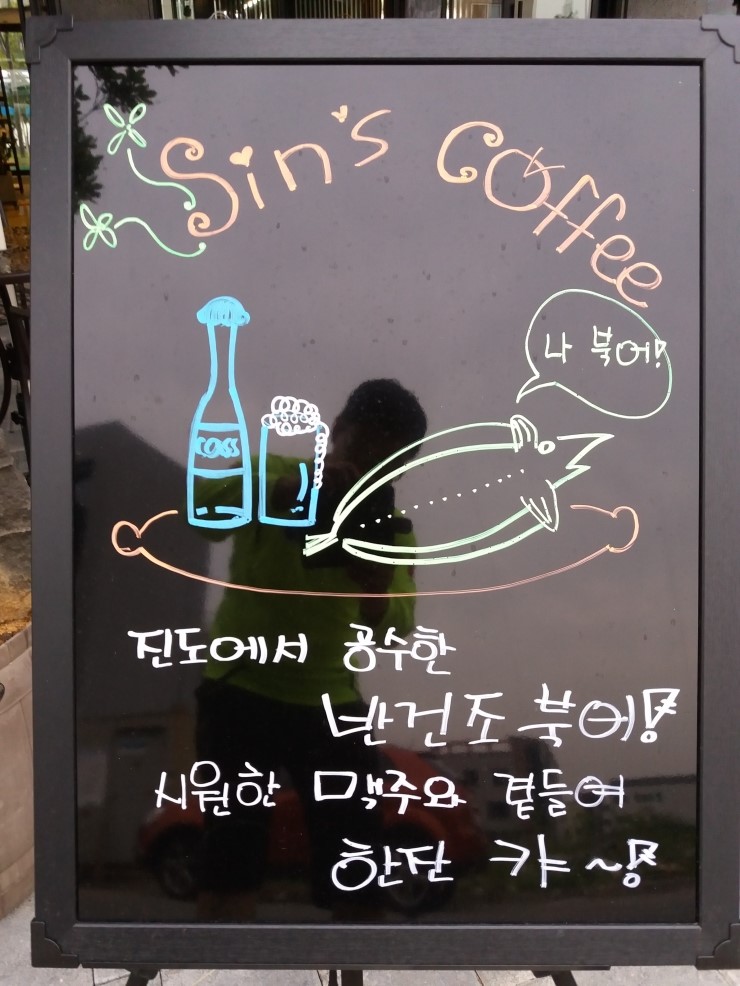 Sin's Coffee
나 북어!
COSS
진도에서 공수한
반건조 북어!
시원한 맥주와 곁들여
한잔 캬~!